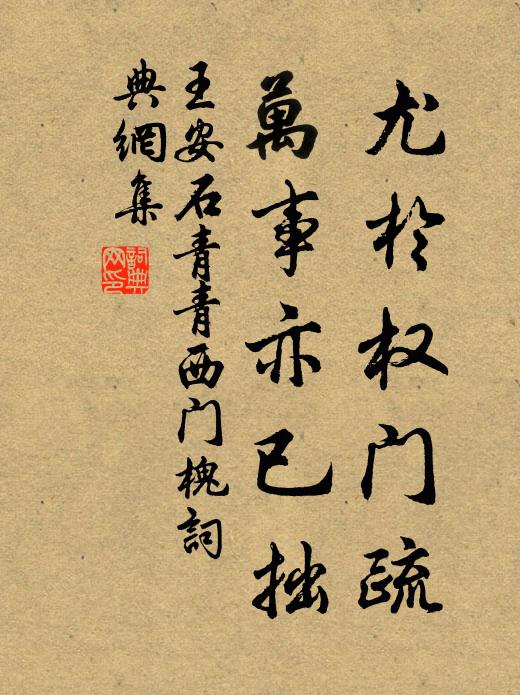 尤於权门疏
萬事亦已拙
王安石青青西门槐詞
典網集
詞典网印